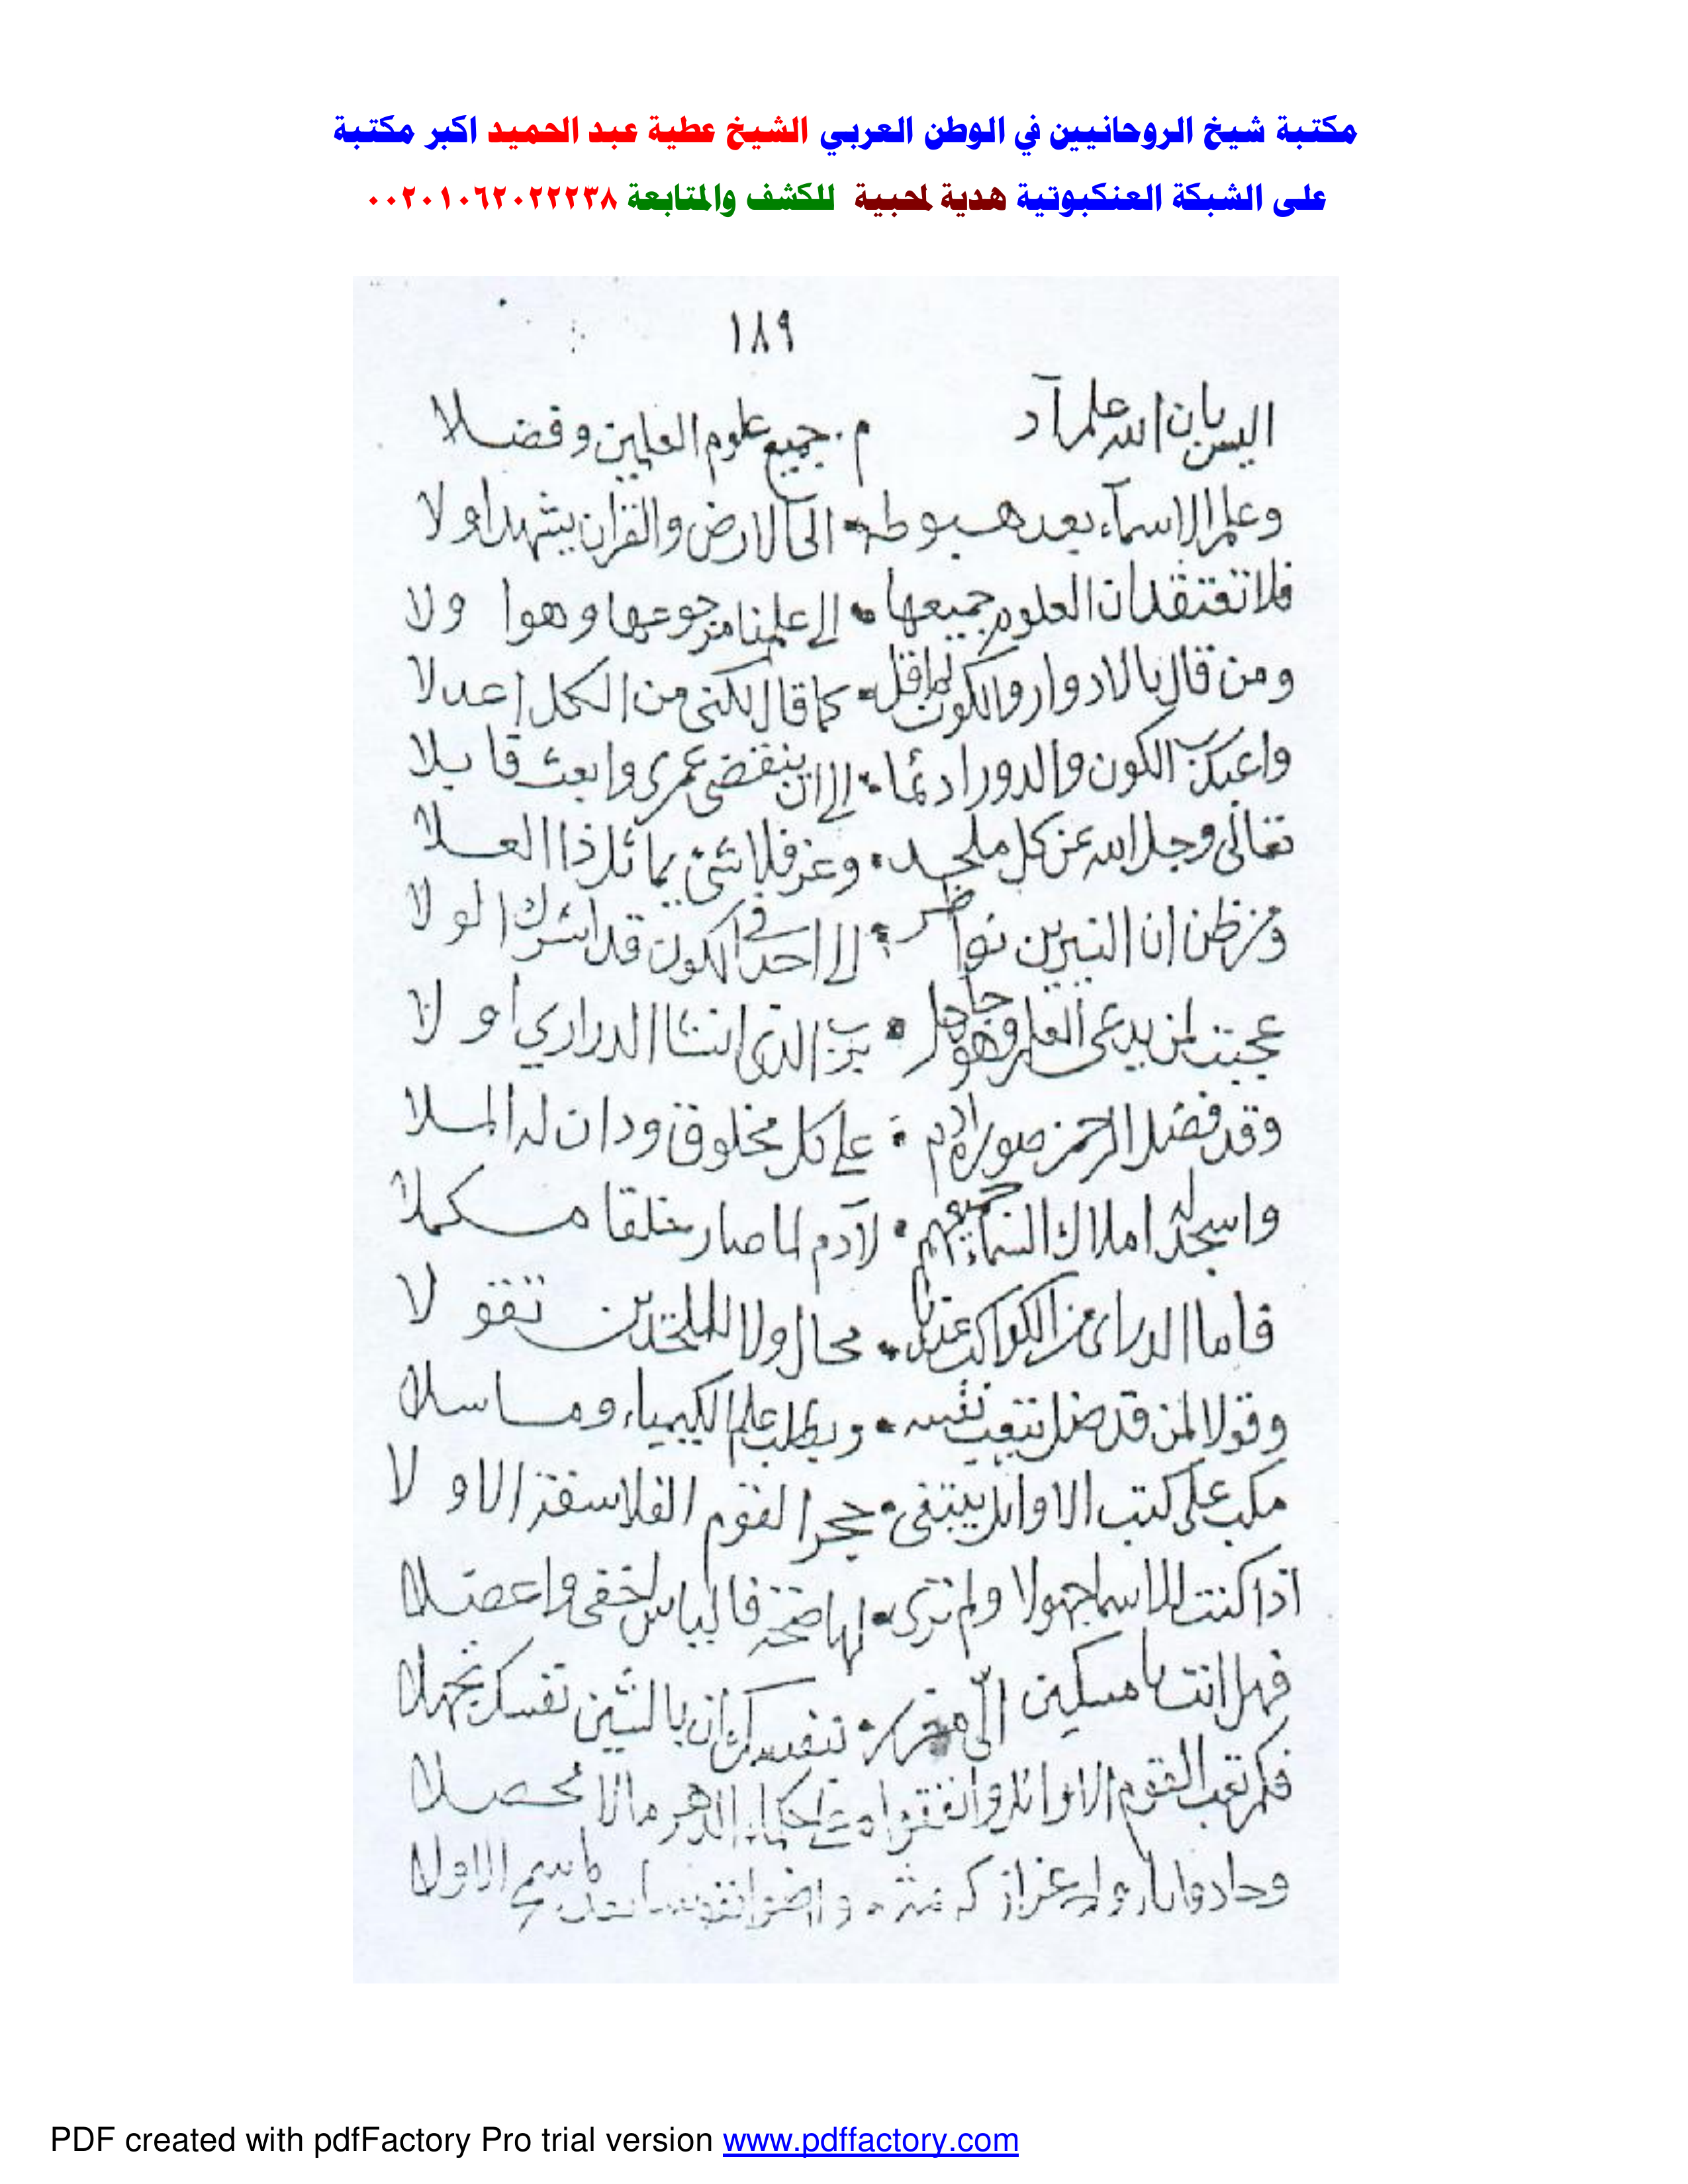 مكتبة شيخ الروحانيين في الوطن العربي الشيخ عطية عبد الحميد اكبر مكتبة
على الشبكة العنكبوتية هدية لمحبية للكشف والمتابعة ٠٠٢٠١٠٦٢٠٢٢٢٣٨
١٨٩
اليس بان الله علم آد م جميع علوم العلمين وفضلا
وعلم الاسماء بعد هبوطه الى الارض والقران يشهد اولا
فلا تعتقد ان العلوم جميعها الى علمنا مرجوعها وهوا ولا
ومن قال بالادوار والكون كما قال لكنى من الكل اعدلا
واعبد رب الكون والدور ادئما الى ان ينقضى عمرى وابعث قايلا
تعالى وجل الله عن كل ملحد وعز فلا شئ يماثل ذا العلا
ومن ظن ان النيرين نواظر الى احد فى الكون قد اشرك الولا
عجبت لمن يدعى العلم وهو جاهل برب الذى انشا الدرارى اولا
وقد فضل الرحمن صورة ادم على كل مخلوق ودان له الملا
واسجد له املاك السماء جميعهم لآدم لما صار خلقا مكملا
فاما الدرائ من الكواكب عندنا محال ولا للملحدين تقولا
وقولا لمن قد ضل نتعب نفسه ويطلب علم الكيمياء وما سلا
مكب على كتب الاوائل يبتغى حجر القوم الفلاسفة الاولا
اذا كنت للاسما جهولا ولم ترى لها صحة فالباس لخفى واعضلا
فهل انت يا مسكين الى بنفسك ان بالشين نفسك تجهلا
فكم تعب القوم الاوائل وانفقوا على الدهر مالا محصلا
الاولا
PDF created with pdfFactory Pro trial version www.pdffactory.com